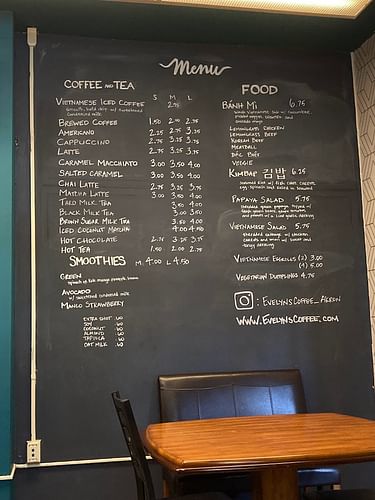 Menu
COFFEE AND TEA
S M L
VIETNAMESE ICED COFFEE 2.75
smooth, bold drip w/ sweetened
condensed milk
BREWED COFFEE 1.50 2.00 2.75
AMERICANO 2.25 2.75 3.25
CAPPUCCINO 2.75 3.25 3.75
LATTE 2.75 3.25 3.75
CARAMEL MACCHIATO 3.00 3.50 4.00
SALTED CARAMEL 3.00 3.50 4.00
CHAI LATTE 2.75 3.25 3.75
MATCHA LATTE 3.00 3.50 4.00
THAI MILK TEA 3.50 4.00
BLACK MILK TEA 3.00 3.50
BROWN SUGAR MILK TEA 3.50 4.00
ICED COCONUT MATCHA 4.00 4.50
HOT CHOCOLATE 2.75 3.25 3.75
HOT TEA 1.50 2.00 2.75
SMOOTHIES M. 4.00 L 4.50
GREEN
spinach mango pineapple banana
AVOCADO
w/ sweetened condensed milk
MANGO STRAWBERRY
EXTRA SHOT .60
SOY .60
COCONUT .60
ALMOND .60
TAPIOCA .60
OAT MILK .60
FOOD
BÁNH MÌ 6.75
LEMONGRASS CHICKEN
LEMONGRASS BEEF
KOREAN BEEF
MEATBALL
ĐẶC BIỆT
VEGGIE
KIMBAP 김밥 6.25
PAPAYA SALAD 5.75
VIETNAMESE SALAD 5.75
VIETNAMESE EGGROLLS (2) 3.00
(4) 5.00
VEGETARIAN DUMPLINGS 4.75
: EVELYNSCOFFEE_AKRON
WWW.EVELYNSCOFFEE.COM